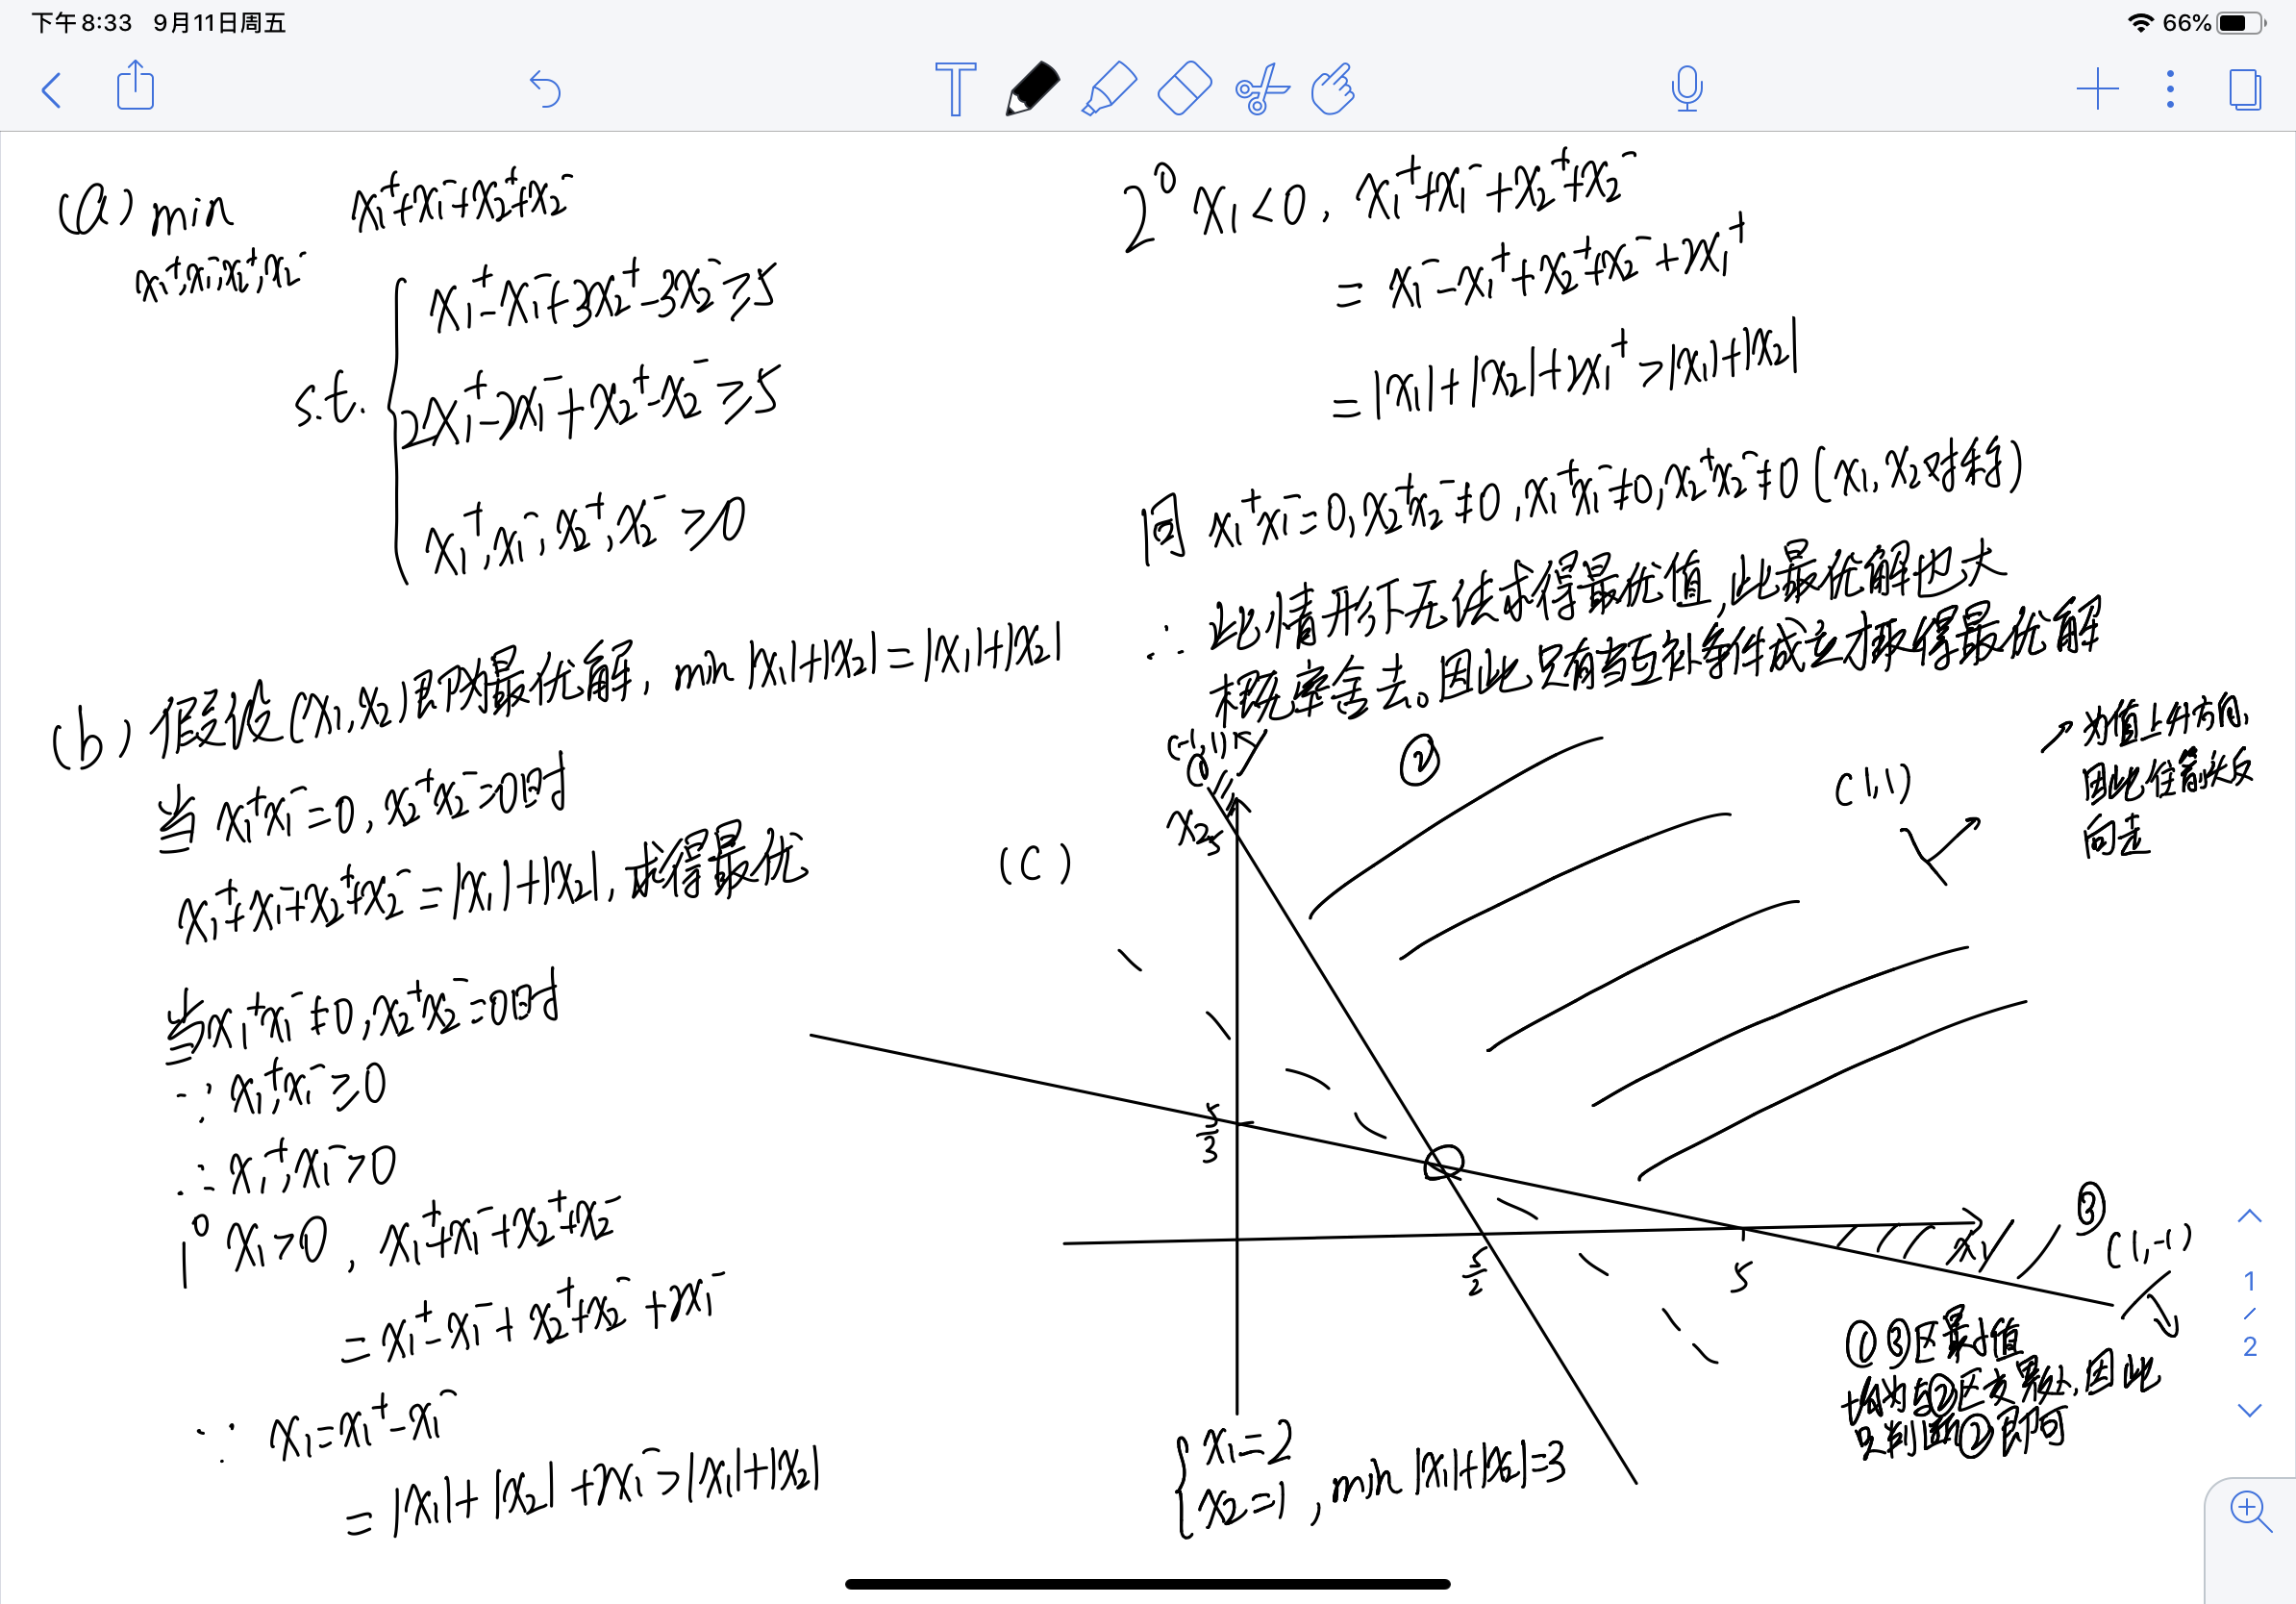 下午8:33 9月11日周五
66%
(a) min x₁⁺+x₁⁻+x₂⁺+x₂⁻
x₁⁺,x₁⁻,x₂⁺,x₂⁻
x₁⁺-x₁⁻+3x₂⁺-3x₂⁻≥5
s.t. 2x₁⁺-2x₁⁻+x₂⁺-x₂⁻≥5
x₁⁺,x₁⁻,x₂⁺,x₂⁻≥0
(b) 假设(x₁,x₂)即为最优解, min |x₁|+|x₂|=|x₁|+|x₂|
当 x₁⁺x₁⁻=0, x₂⁺x₂⁻=0时
x₁⁺+x₁⁻+x₂⁺+x₂⁻=|x₁|+|x₂|, 求得最优
当x₁⁺x₁⁻≠0, x₂⁺x₂⁻=0时
∵ x₁⁺,x₁⁻≥0
∴ x₁⁺,x₁⁻>0
1⁰ x₁>0, x₁⁺+x₁⁻+x₂⁺+x₂⁻
= x₁⁺-x₁⁻+x₂⁺+x₂⁻+2x₁⁻
∵ x₁=x₁⁺-x₁⁻
= |x₁|+|x₂|+2x₁⁻>|x₁|+|x₂|
2⁰ x₁<0, x₁⁺+x₁⁻+x₂⁺+x₂⁻
= x₁⁻-x₁⁺+x₂⁺+x₂⁻+2x₁⁺
=|x₁|+|x₂|+2x₁⁺>|x₁|+|x₂|
同 x₁⁺x₁⁻=0, x₂⁺x₂⁻≠0, x₁⁺x₁⁻≠0, x₂⁺x₂⁻≠0 (x₁,x₂对称)
∴ 此情形下无法求得最优值,此最优解也大
舍去。因此,只有当互补条件成立才取得最优解
(c)
(-1,1)
①
x₂
5
②
(1,1)
↗为值上升方向,
因此往箭头反
向走
5/3
5/2
5
x₁
③
(1,-1)
①③区最小值
均为与②区交界处,因此
只判断②即可
x₁=2
x₂=1, min |x₁|+|x₂|=3
1
/
2